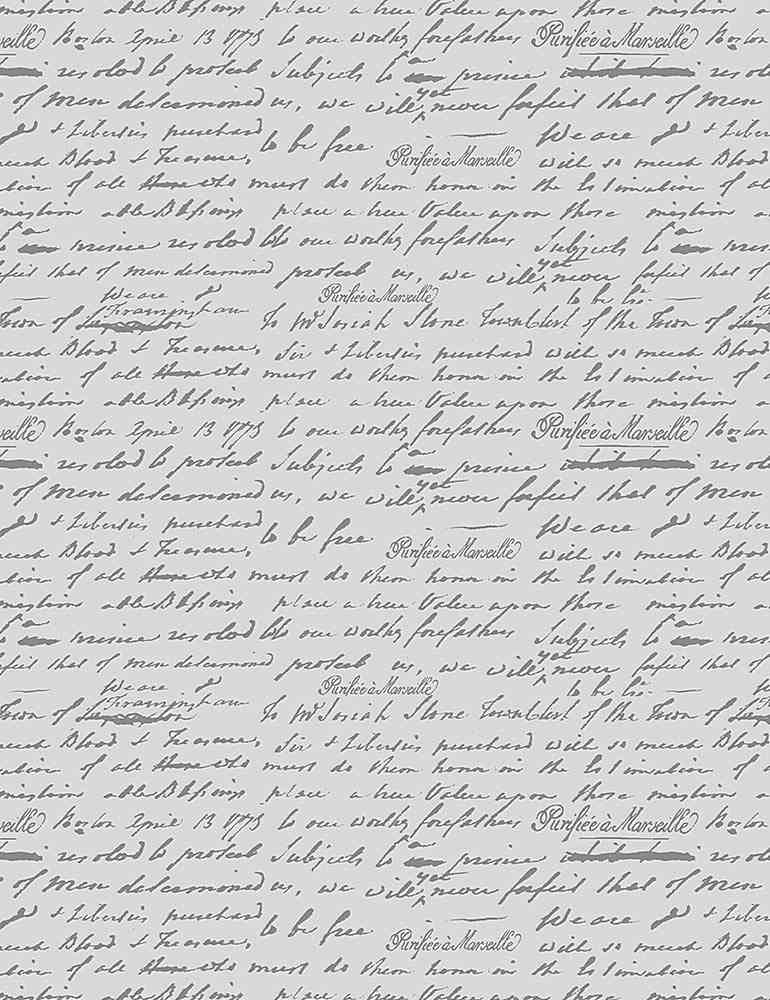 mission able Blessings place a true Value upon those mission
Marseille Boston April 13 1773 to our worthy forefathers Purifiée à Marseille Boston
resolved to protect Subjects to a prince
of men determined us, we will yet never forfeit that of men
& Liberties purchased to be free. We are & Liber
much Blood & Treasure, Purifiée à Marseille with so much Blood
of all who must do them honor in the Estimation of al
mission able Blessings place a true Value upon those mission
a prince resolved to our worthy forefathers Subjects to a
forfeit that of men determined protect us, we will yet never forfeit that of
We are Purifiée à Marseille to be
Town of Framingham To Mr Josiah Stone Town of the Town of
much Blood & Treasure, Sir & Liberties purchased with so much Blood
of all who must do them honor in the Estimation of al
mission able Blessings place a true Value upon those mission
Marseille Boston April 13 1773 to our worthy forefathers Purifiée à Marseille Boston
resolved to protect Subjects to a prince
of men determined us, we will yet never forfeit that of men
& Liberties purchased to be free. We are & Liber
much Blood & Treasure, Purifiée à Marseille with so much Blood
of all who must do them honor in the Estimation of al
mission able Blessings place a true Value upon those mission
a prince resolved to our worthy forefathers Subjects to a
forfeit that of men determined protect us, we will yet never forfeit that of
We are Purifiée à Marseille to be
Town of Framingham To Mr Josiah Stone Town of the Town of
much Blood & Treasure, Sir & Liberties purchased with so much Blood
of all who must do them honor in the Estimation of al
mission able Blessings place a true Value upon those mission
Marseille Boston April 13 1773 to our worthy forefathers Purifiée à Marseille Boston
resolved to protect Subjects to a prince
of men determined us, we will yet never forfeit that of men
& Liberties purchased to be free. We are & Liber
much Blood & Treasure, Purifiée à Marseille with so much Blood
of all who must do them honor in the Estimation of al
mission able Blessings place a true Value upon those mission